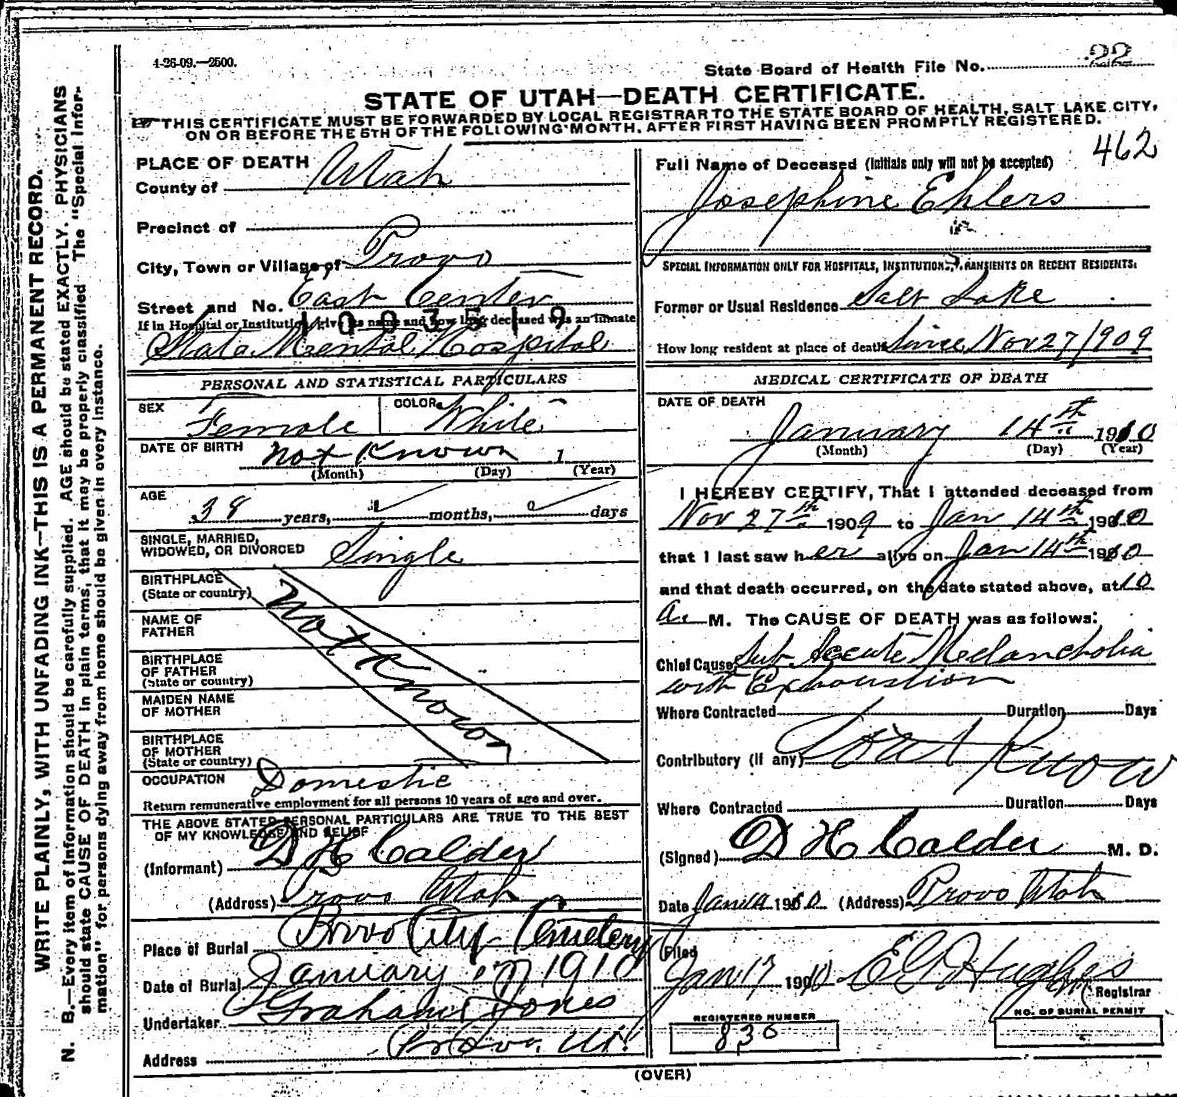 4-26-09.—2500.
State Board of Health File No. 22
STATE OF UTAH—DEATH CERTIFICATE.
THIS CERTIFICATE MUST BE FORWARDED BY LOCAL REGISTRAR TO THE STATE BOARD OF HEALTH, SALT LAKE CITY,
ON OR BEFORE THE 5TH OF THE FOLLOWING MONTH, AFTER FIRST HAVING BEEN PROMPTLY REGISTERED.
462
WRITE PLAINLY, WITH UNFADING INK—THIS IS A PERMANENT RECORD.
N. B.—Every item of information should be carefully supplied. AGE should be stated EXACTLY. PHYSICIANS
should state CAUSE OF DEATH in plain terms, that it may be properly classified. The "Special Infor-
mation" for persons dying away from home should be given in every instance.
PLACE OF DEATH
County of Utah
Precinct of
City, Town or Village of Provo
Street and No. East Center
If in Hospital or Institution, give its name and how long deceased was an inmate
State Mental Hospital
PERSONAL AND STATISTICAL PARTICULARS
SEX Female COLOR White
DATE OF BIRTH Not Known 1
(Month) (Day) (Year)
AGE
38 years, months, days
SINGLE, MARRIED,
WIDOWED, OR DIVORCED Single
BIRTHPLACE
(State or country)
NAME OF
FATHER
BIRTHPLACE
OF FATHER
(State or country)
MAIDEN NAME
OF MOTHER
BIRTHPLACE
OF MOTHER
(State or country)
Not Known
OCCUPATION Domestic
Return remunerative employment for all persons 10 years of age and over.
THE ABOVE STATED PERSONAL PARTICULARS ARE TRUE TO THE BEST
OF MY KNOWLEDGE AND BELIEF
(Informant) D H Calder
(Address) Provo Utah
Place of Burial Provo City Cemetery
Date of Burial January 17 1910
Undertaker Graham Jones
Address Provo, Ut.
Full Name of Deceased (Initials only will not be accepted)
Josephine Ehlers
SPECIAL INFORMATION ONLY FOR HOSPITALS, INSTITUTIONS, TRANSIENTS OR RECENT RESIDENTS.
Former or Usual Residence Salt Lake
How long resident at place of death Since Nov 27/1909
MEDICAL CERTIFICATE OF DEATH
DATE OF DEATH
January 14th 1910
(Month) (Day) (Year)
I HEREBY CERTIFY, That I attended deceased from
Nov 27th 1909 to Jan 14th 1910
that I last saw her alive on Jan 14th 1910
and that death occurred, on the date stated above, at 10
a. M. The CAUSE OF DEATH was as follows:
Chief Cause Sub Accute Melancholia
with Exhaustion
Where Contracted Duration Days
Contributory (if any) Don't Know
Where Contracted Duration Days
(Signed) D H Calder M. D.
Date Jan 14 1910 (Address) Provo Utah
Filed
Jan 17 1910 E G Hughes
Registrar
REGISTERED NUMBER
836
NO. OF BURIAL PERMIT
(OVER)